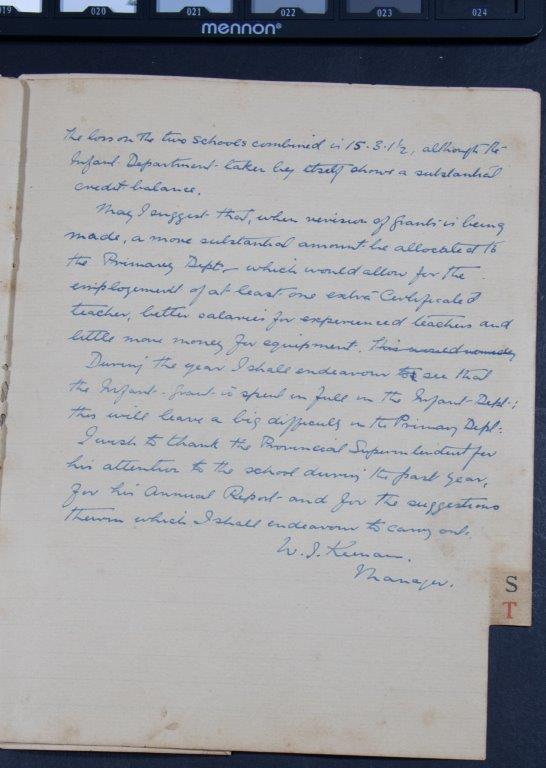 019 020 021 022 023 024
mennon®
The loss on the two schools combined is 15.3.1½, although the
Infant Department taken by itself shows a substantial
credit balance.
May I suggest that, when revision of grants is being
made, a more substantial amount be allocated to
the Primary Dept. – which would allow for the
employment of at least one extra Certificated
teacher, better salaries for experienced teachers and
little more money for equipment. This would remedy
During the year I shall endeavour to see that
the Infant-Grant is spent in full in the Infant Dept:;
this will leave a big difficulty in the Primary Dept:
I wish to thank the Provincial Superintendent for
his attention to the school during the past year,
for his Annual Report and for the suggestions
therein which I shall endeavour to carry out.
W. J. Keenan.
Manager.
S
T